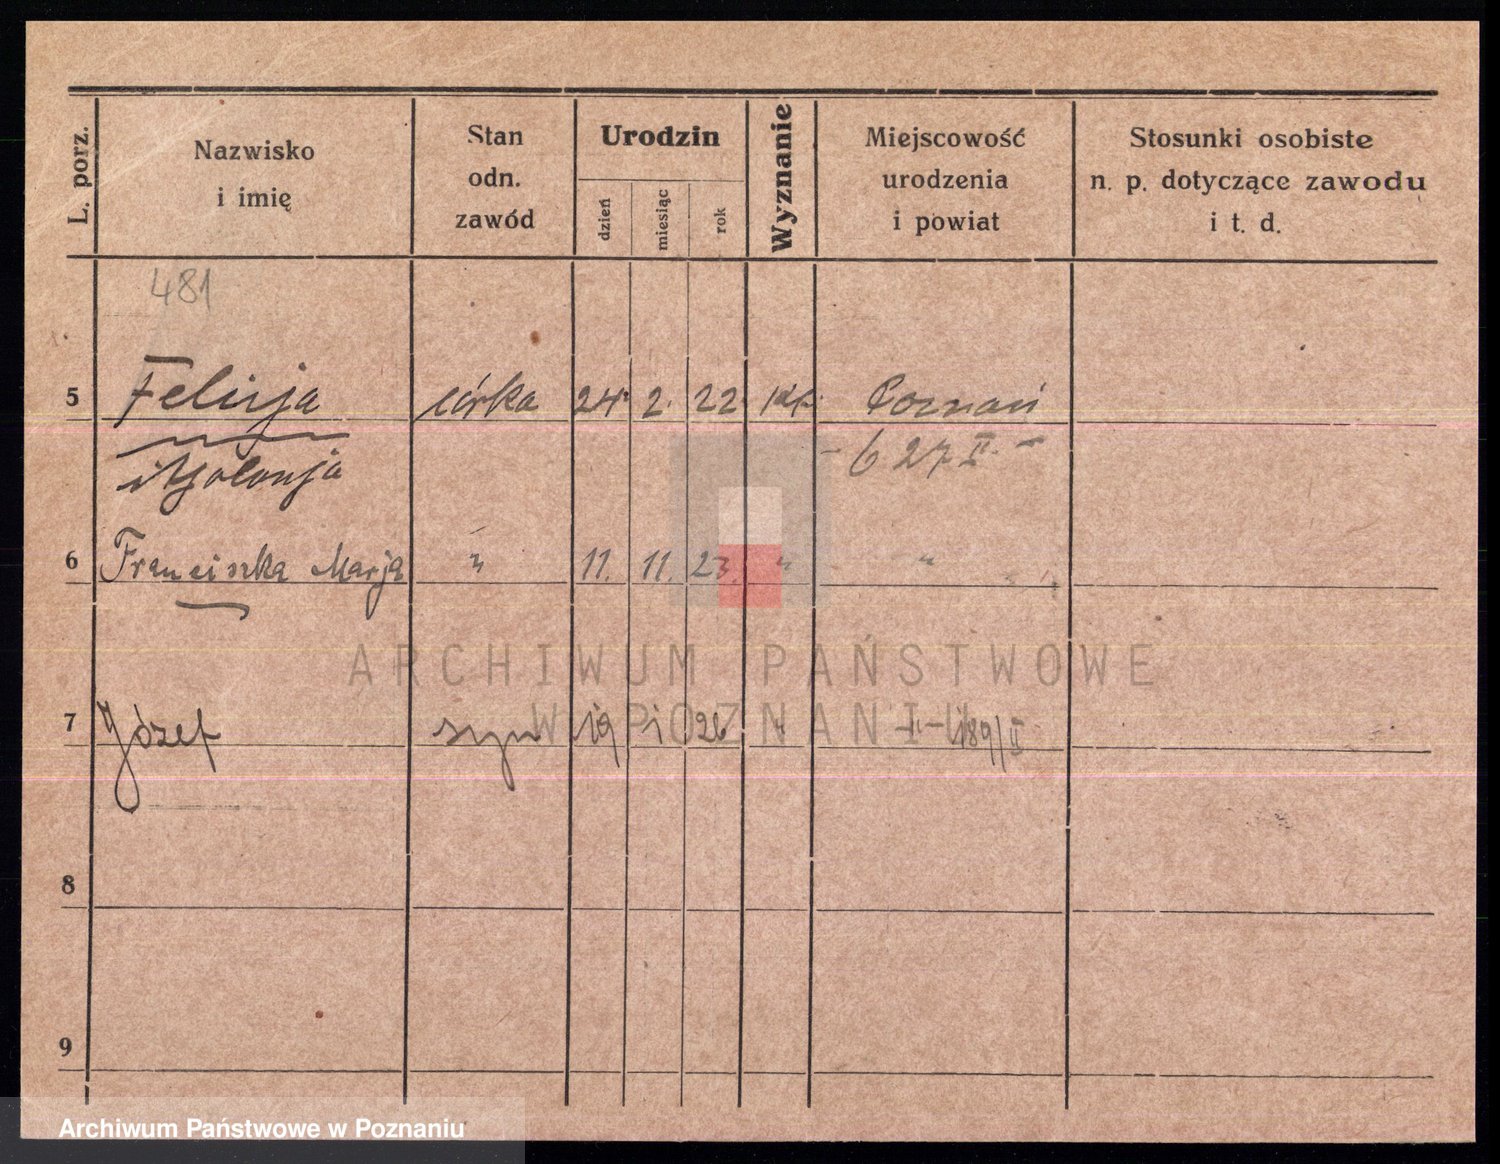 L. porz.
Nazwisko
i imię
Stan
odn.
zawód
Urodzin
dzień
miesiąc
rok
Wyznanie
Miejscowość
urodzenia
i powiat
Stosunki osobiste
n. p. dotyczące zawodu
i t. d.
481
5 Felicja córka 24. 2. 22. Poznań
627 II. -
6 Franciszka Marja " 11. 11. 23. " "
ARCHIWUM PAŃSTWOWE
W POZNANIU
7 Józef syn 19 1 26 " 189/II
8
9
Archiwum Państwowe w Poznaniu